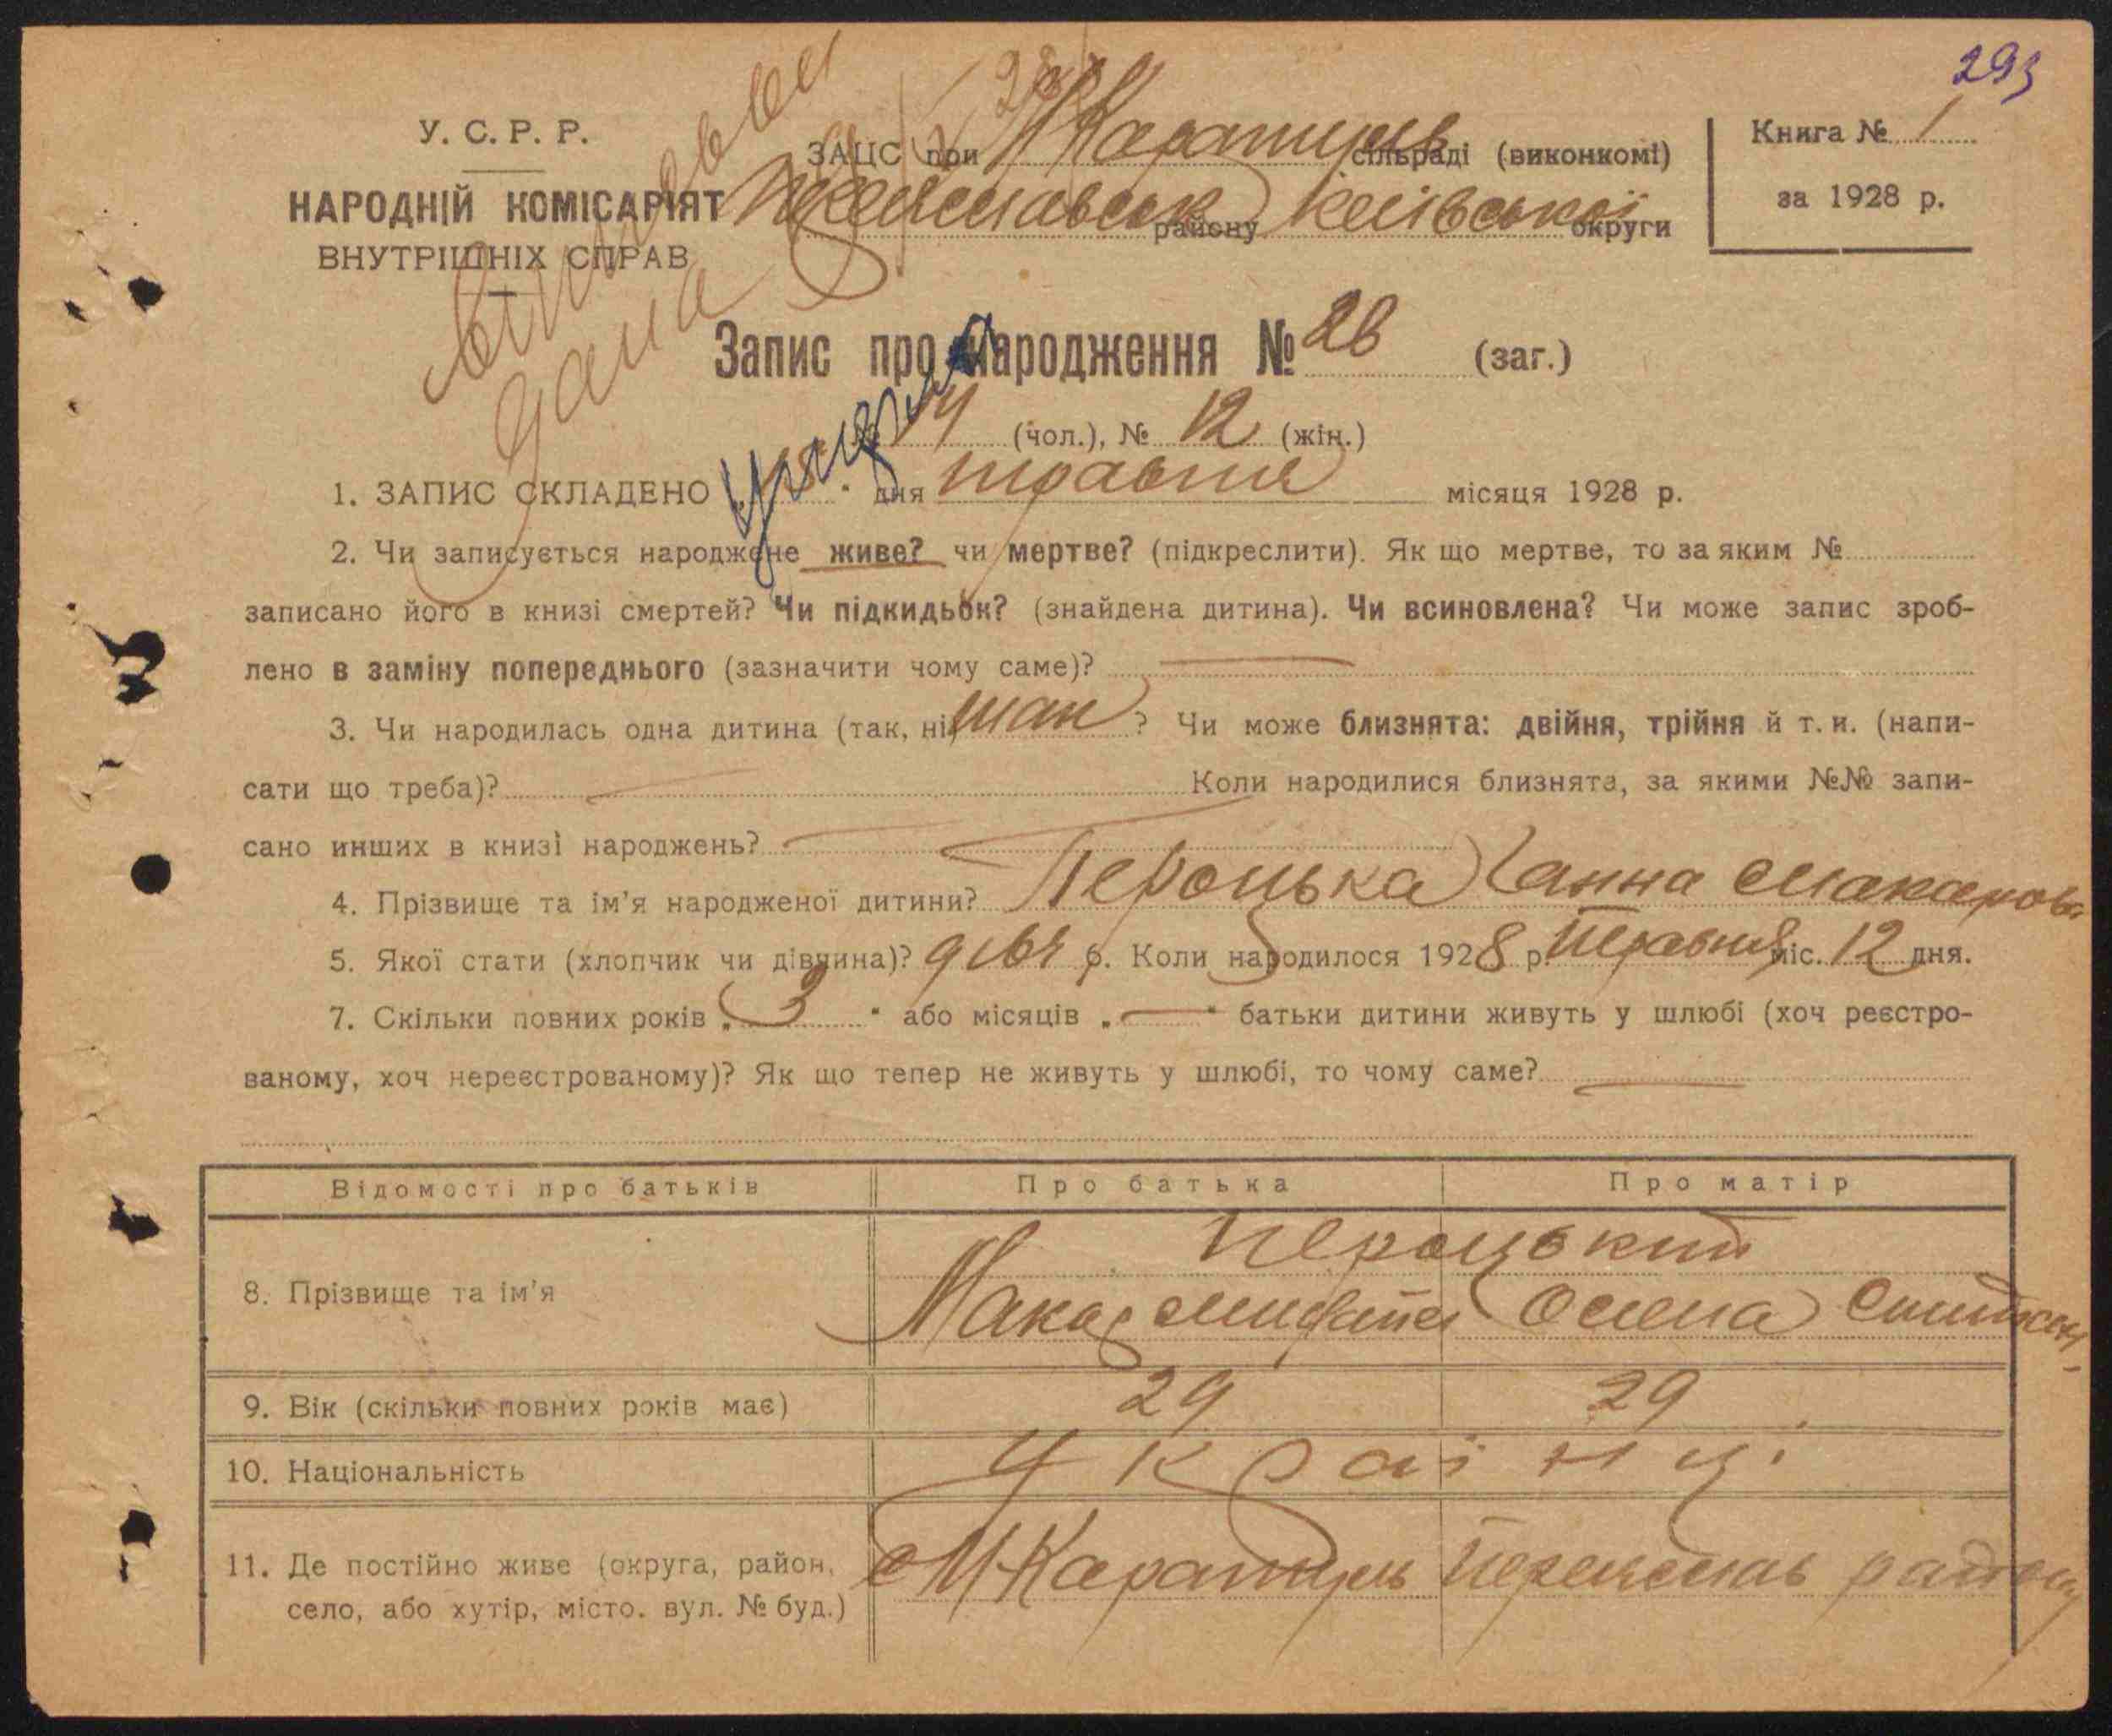 293
У. С. Р. Р.
НАРОДНІЙ КОМІСАРІЯТ
ВНУТРІШНІХ СПРАВ
ЗАЦС при Каратуль сільраді (виконкомі)
району Київської округи
Книга № 1
за 1928 р.
Запис про народження № 26 (заг.)
14 (чол.), № 12 (жін.)
1. ЗАПИС СКЛАДЕНО " дня травня місяця 1928 р.
2. Чи записується народжене живе? чи мертве? (підкреслити). Як що мертве, то за яким №
записано його в книзі смертей? Чи підкидьок? (знайдена дитина). Чи всиновлена? Чи може запис зроб-
лено в заміну попереднього (зазначити чому саме)?
3. Чи народилась одна дитина (так, ні) так ? Чи може близнята: двійня, трійня й т. и. (напи-
сати що треба)? Коли народилися близнята, за якими №№ запи-
сано инших в книзі народжень?
4. Прізвище та ім'я народженої дитини? Пероцька Ганна Макаров
5. Якої статі (хлопчик чи дівчина)? дівч 6. Коли народилося 1928 р. Травня міс. 12 дня.
7. Скільки повних років „ 3 " або місяців „ — " батьки дитини живуть у шлюбі (хоч реєстро-
ваному, хоч нереєстрованому)? Як що тепер не живуть у шлюбі, то чому саме?
Відомості про батьків Про батька Про матір
Пероцький
8. Прізвище та ім'я Макар Олена
9. Вік (скільки повних років має) 29 29
10. Національність Україн ці
11. Де постійно живе (округа, район, с М Каратуль Переяслав району
село, або хутір, місто. вул. № буд.)